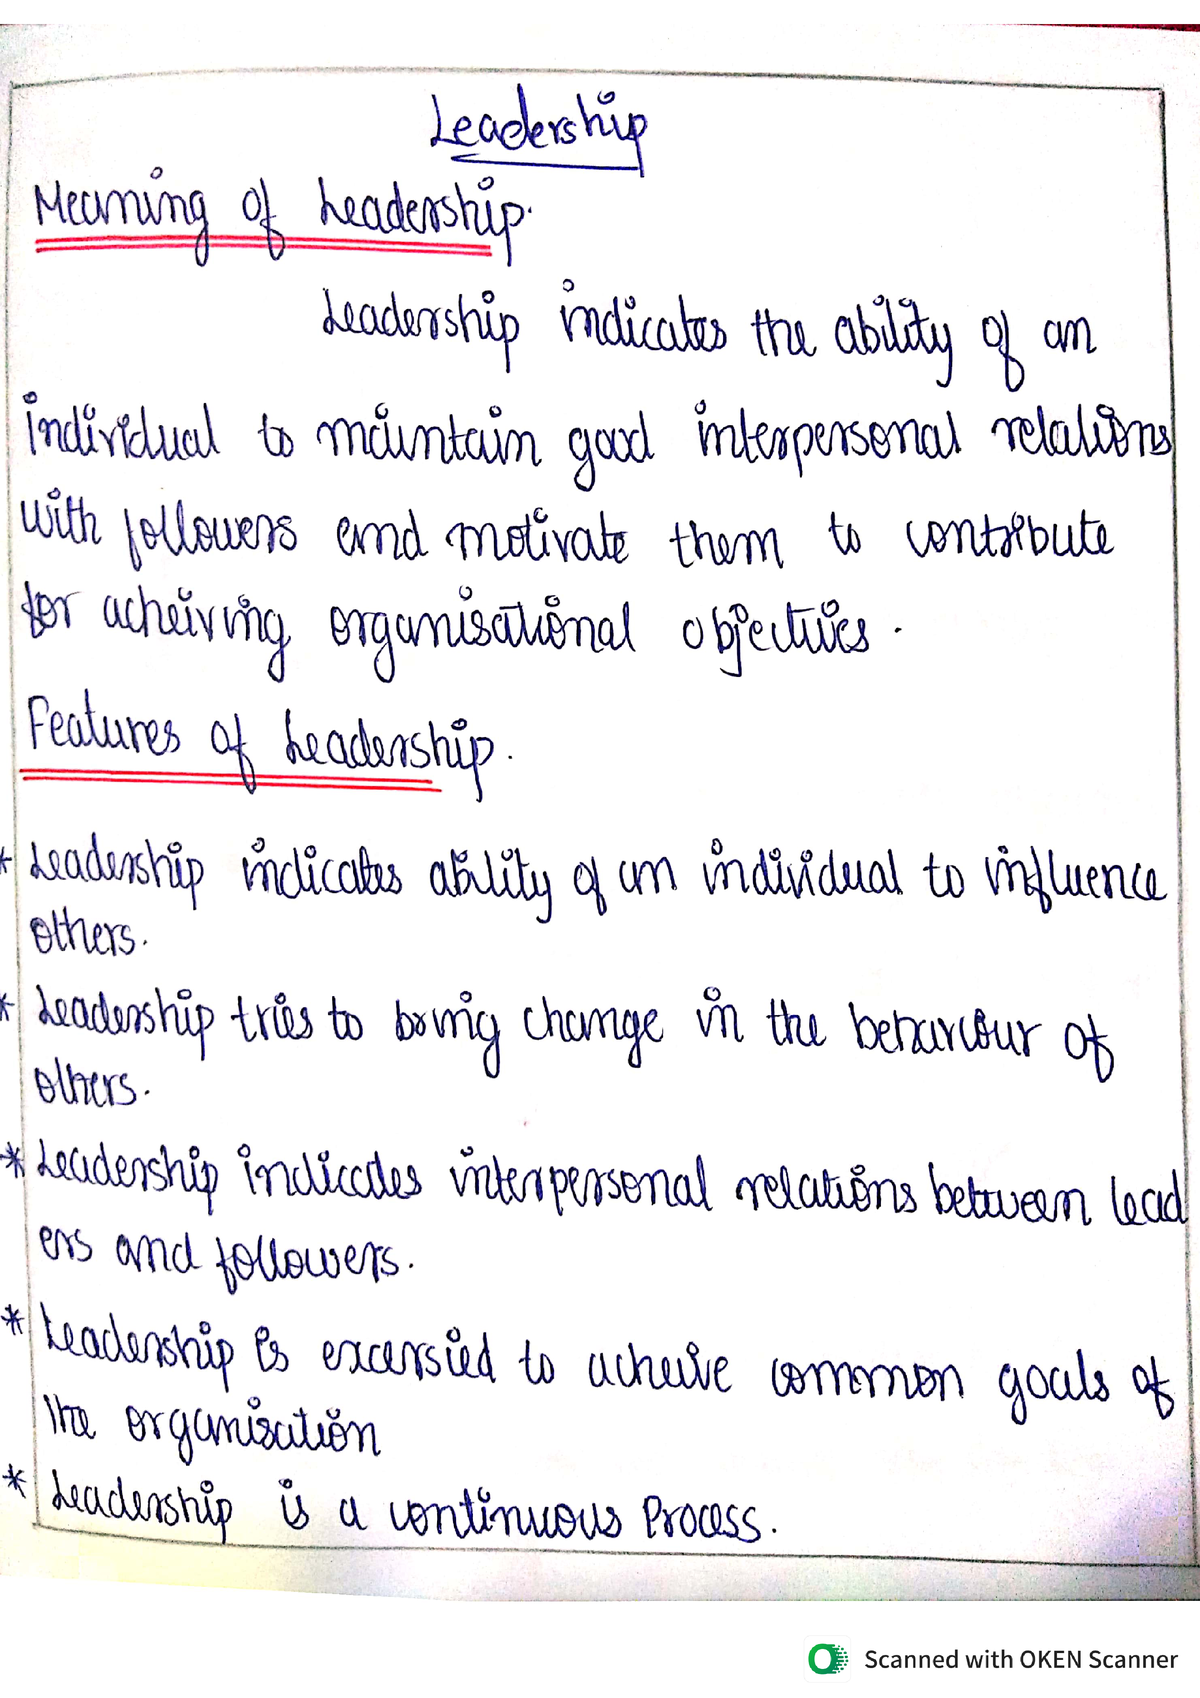 Leadership
Meaning of Leadership.
Leadership indicates the ability of an
individual to maintain good interpersonal relations
with followers and motivate them to contribute
for acheiving organisational objectives.
Features of Leadership.
* Leadership indicates ability of an individual to influence
others.
* Leadership tries to bring change in the behaviour of
others.
* Leadership indicates interpersonal relations between lead
ers and followers.
* Leadership is excersied to acheive common goals of
the organisation
* Leadership is a continuous Process.
Scanned with OKEN Scanner